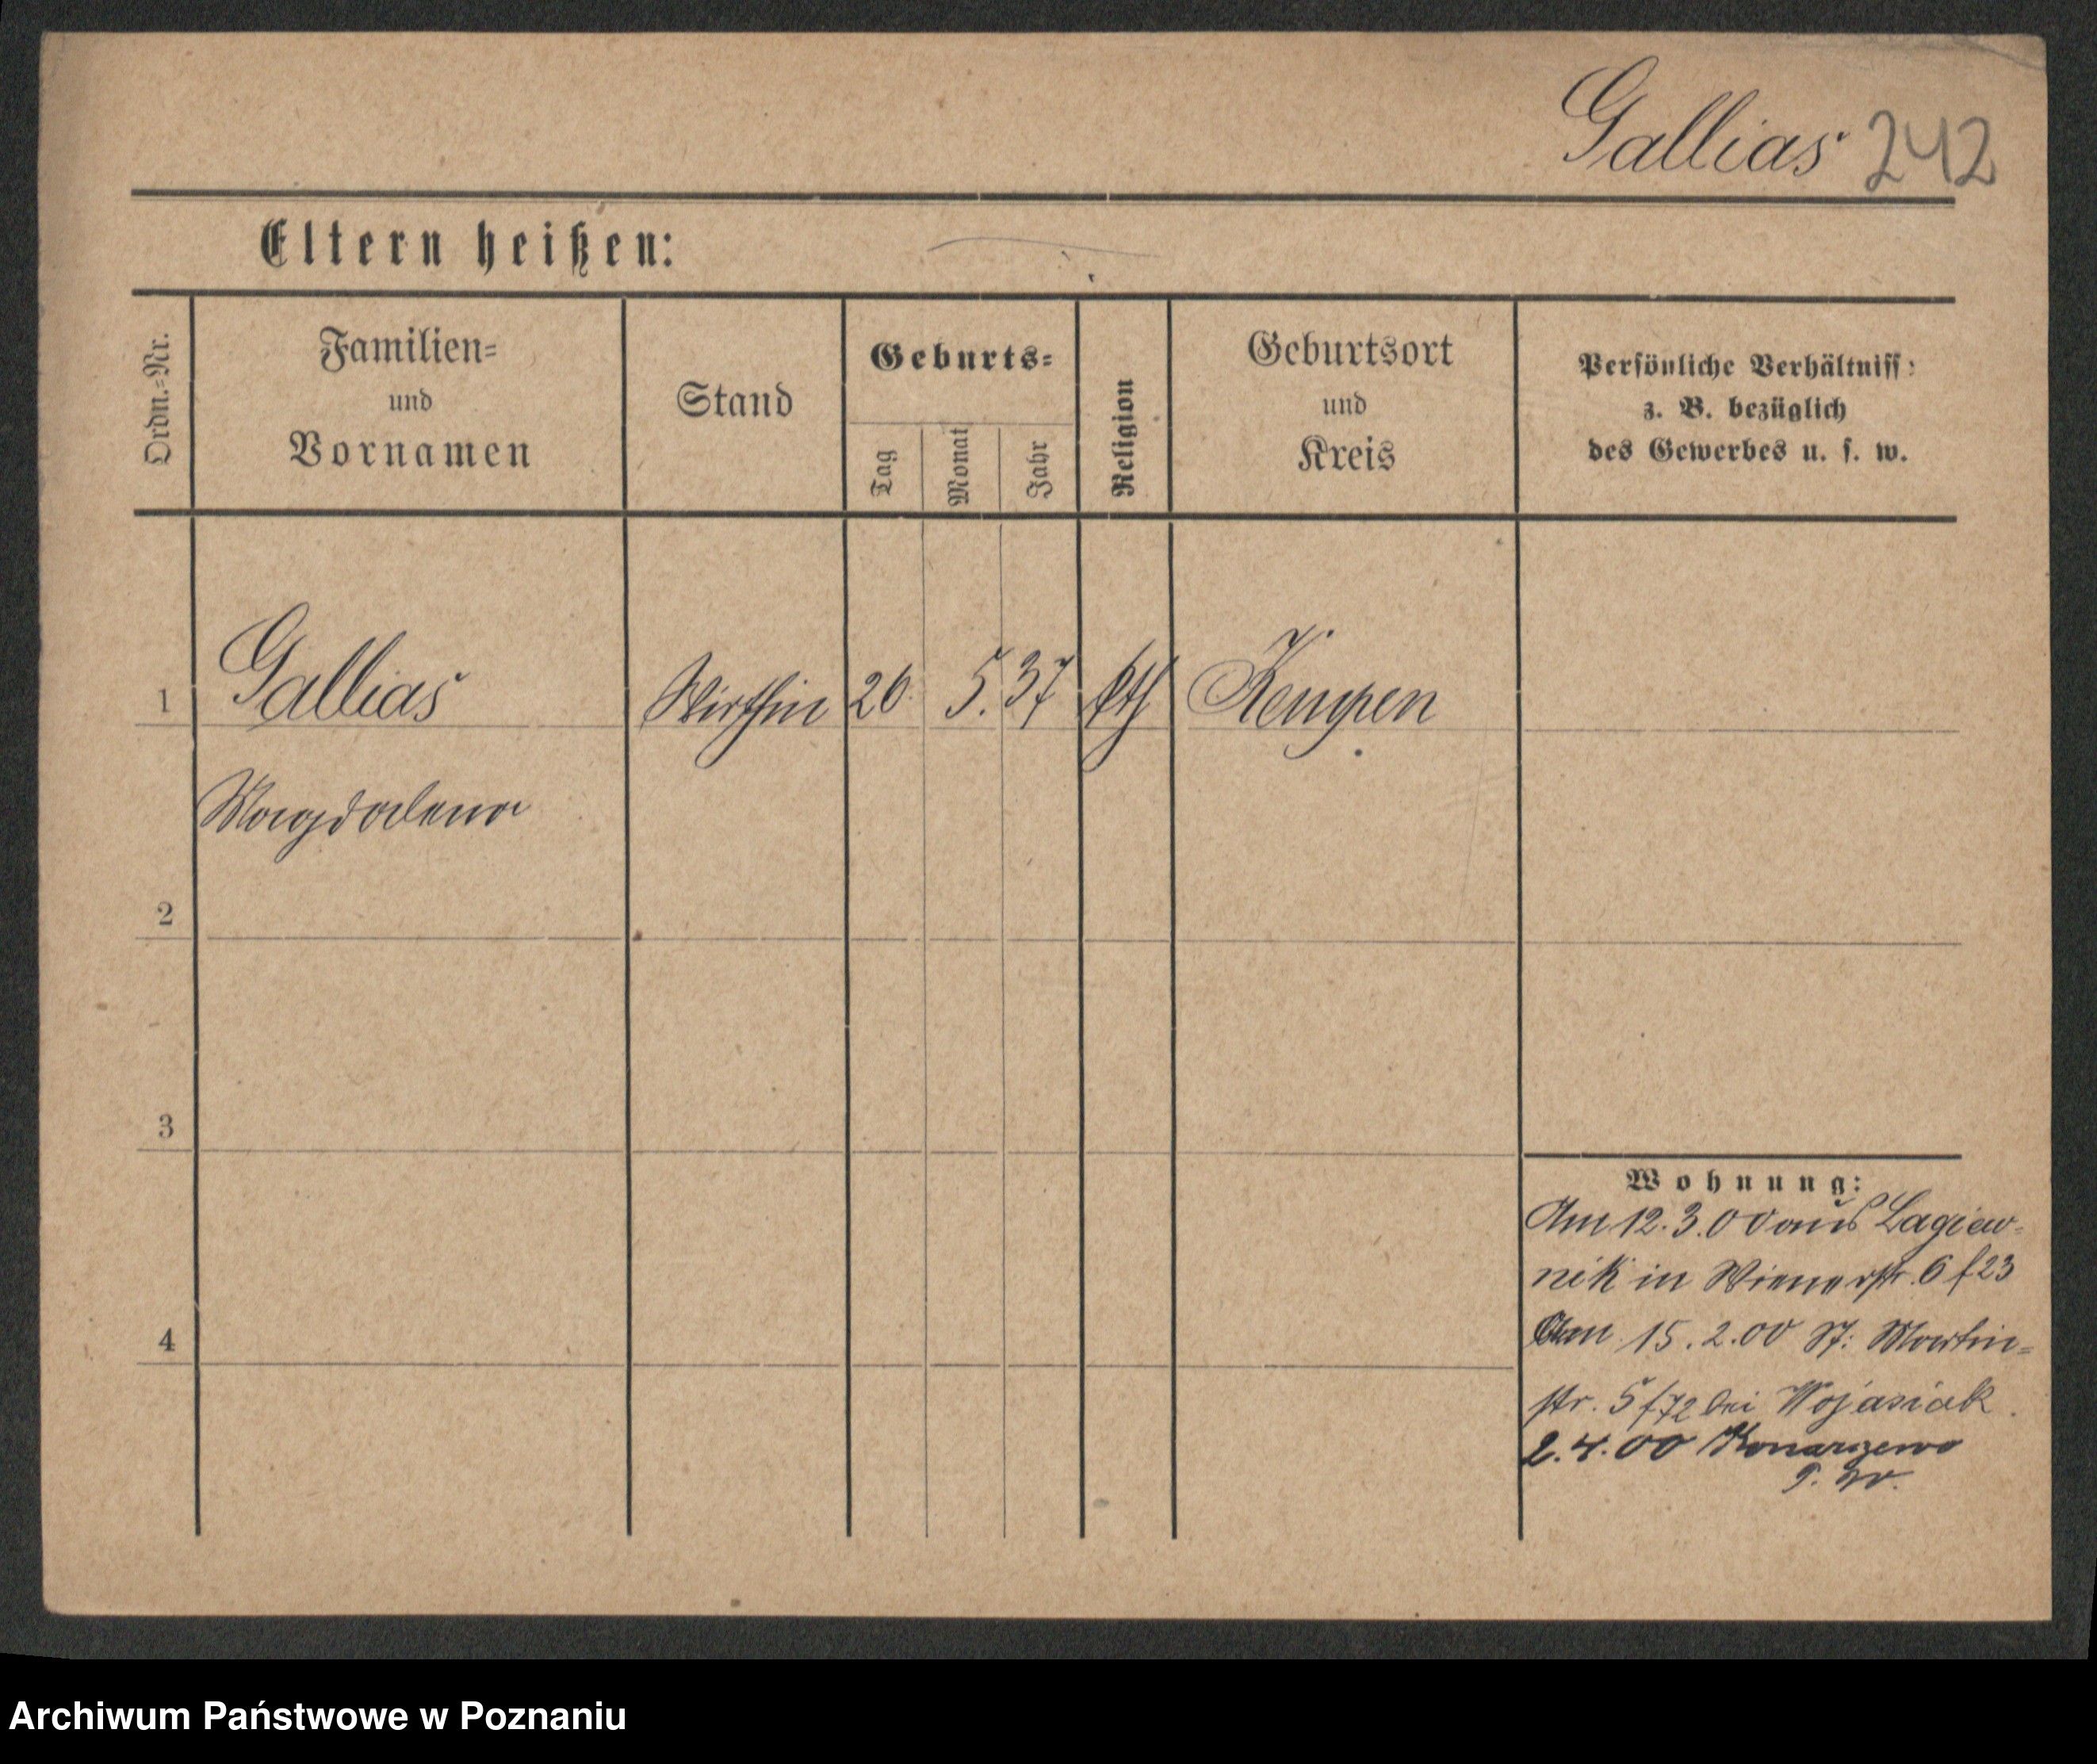 Gallias 242
Eltern heißen:
Ordn.=Nr.
Familien=
und
Vornamen
Stand
Geburts=
Tag
Monat
Jahr
Religion
Geburtsort
und
Kreis
Persönliche Verhältniss
z. B. bezüglich
des Gewerbes u. s. w.
1 Gallias Wirthin 26 5. 37 kth Kempen
Magdalena
2
3
4
Wohnung:
Am 12.3.00 aus Lagiew-
nik in Wienerstr. 6 f 23
Am 15.2.00 St: Martin=
str. 5 f 72 bei Wojasiak.
2.4.00 Konarzewo
P. W.
Archiwum Państwowe w Poznaniu